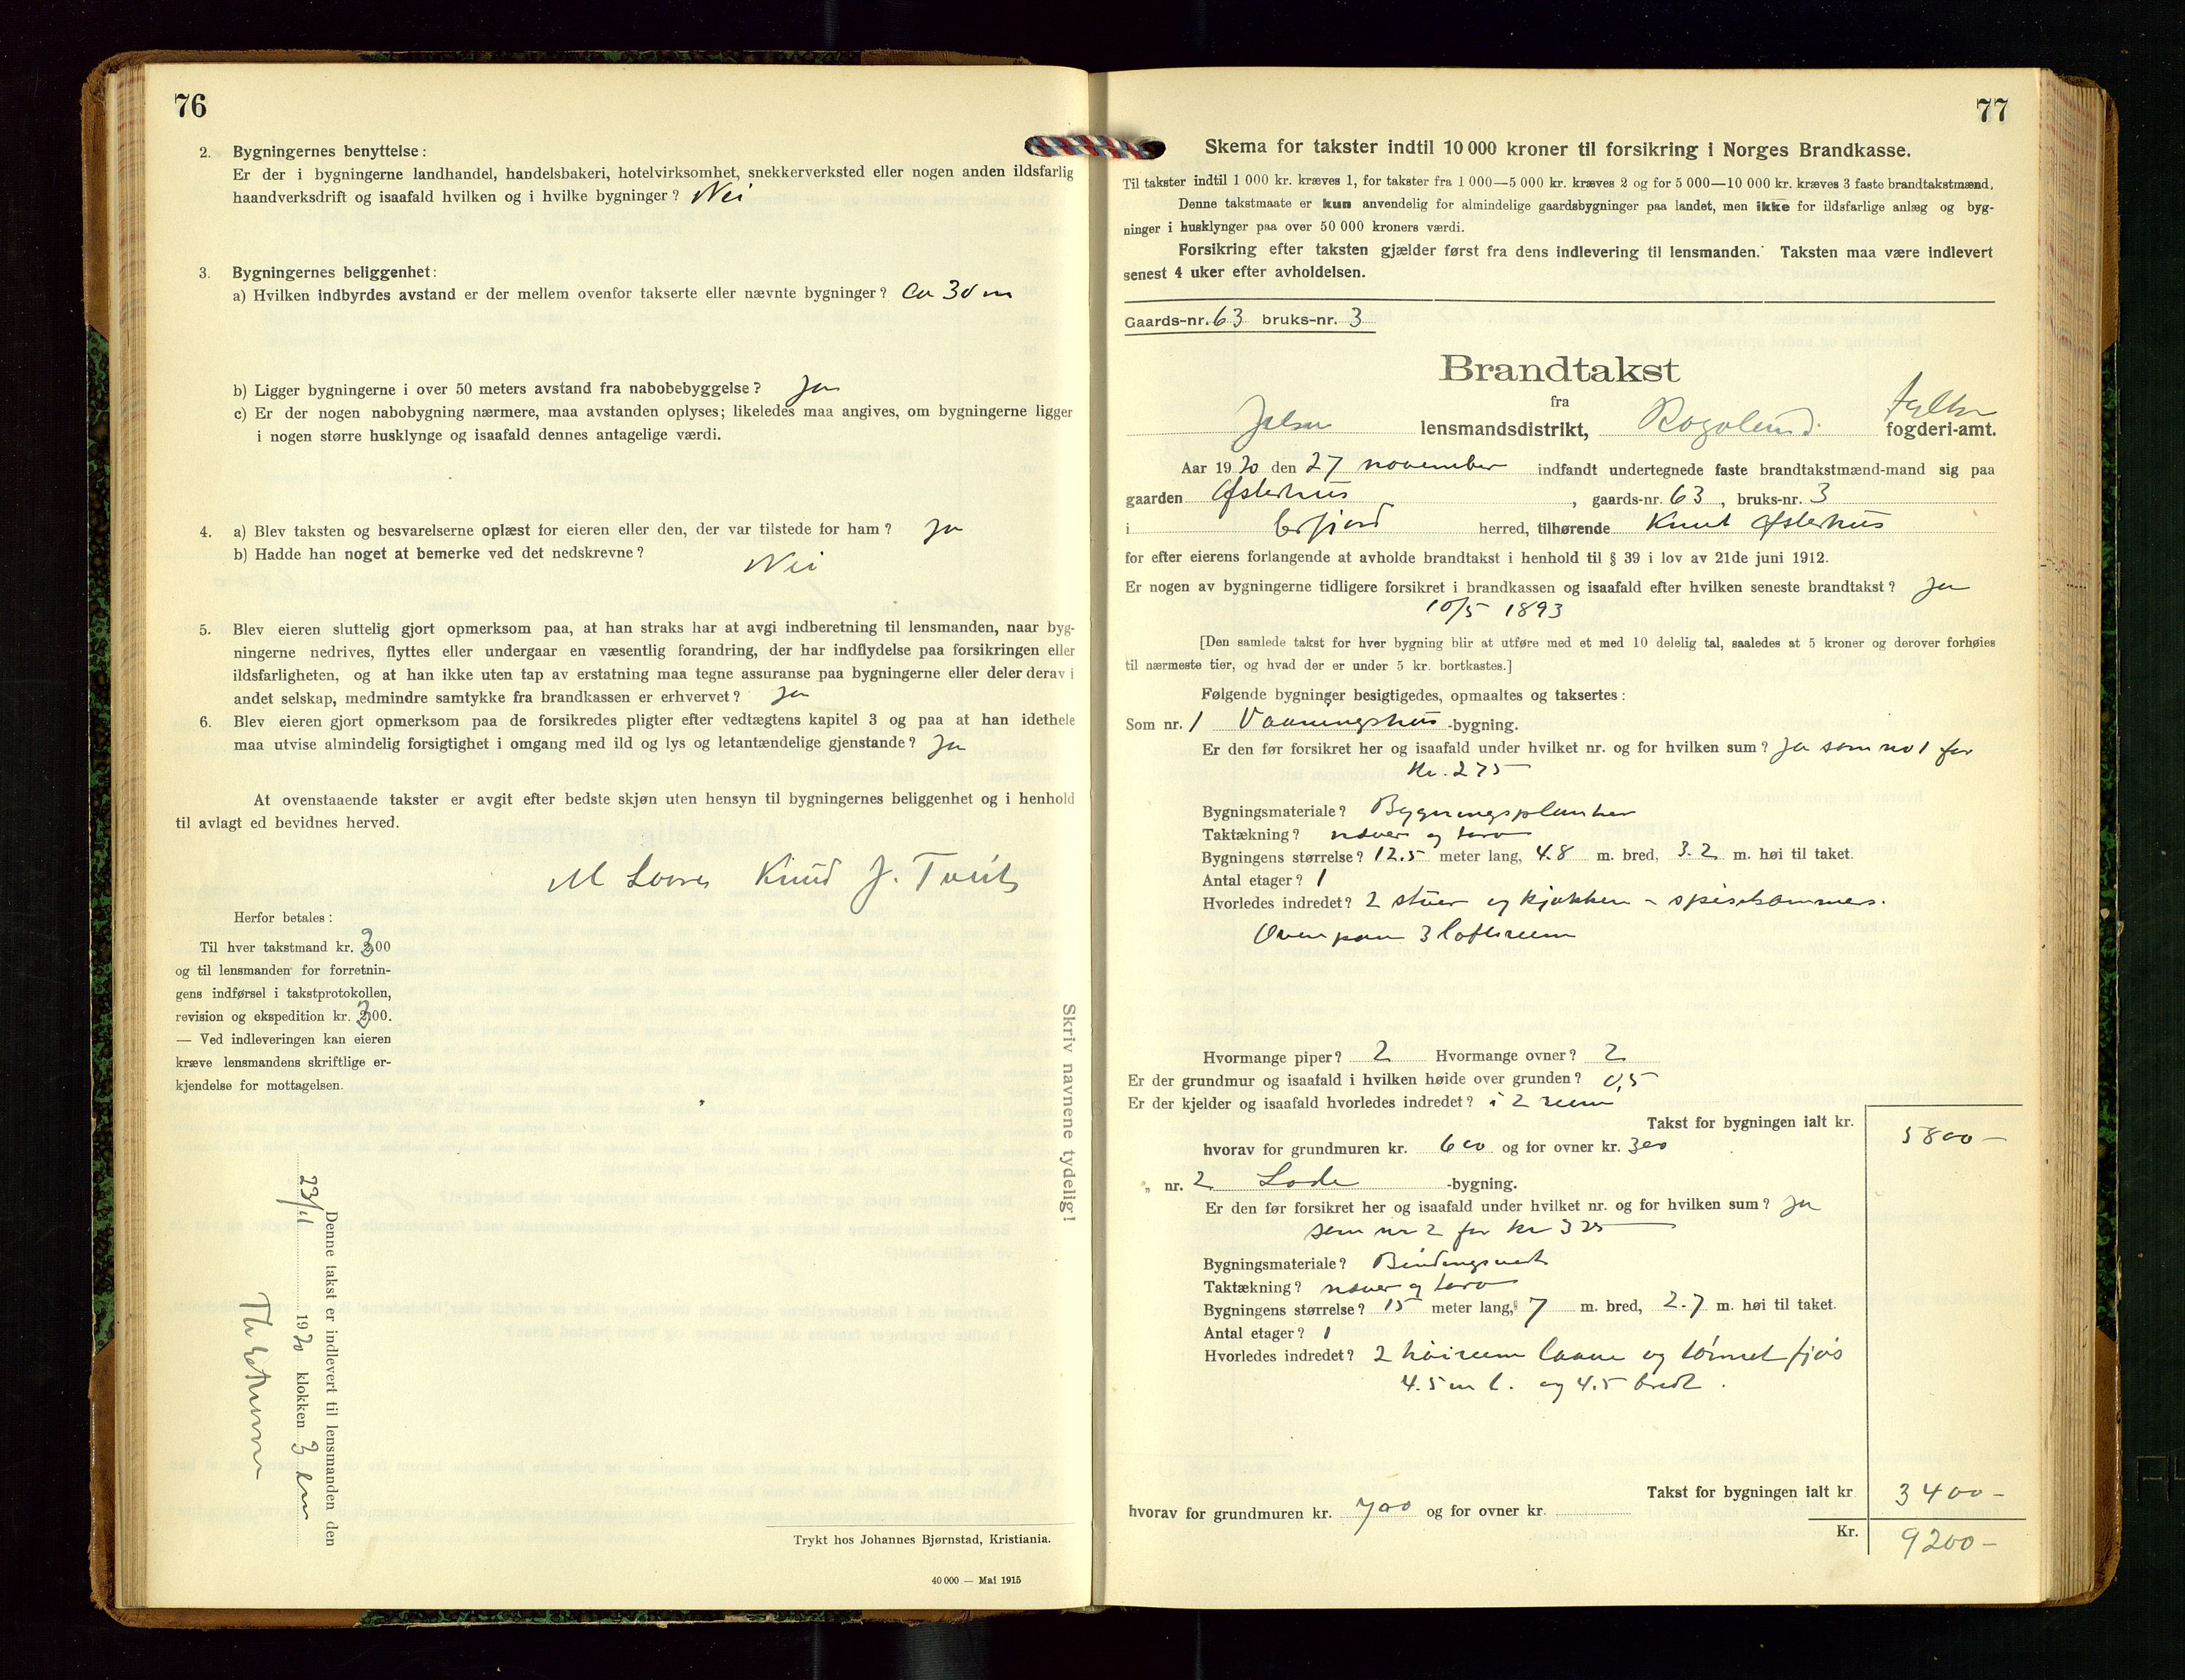 76
2. Bygningernes benyttelse:
Er der i bygningerne landhandel, handelsbakeri, hotelvirksomhet, snekkerverksted eller nogen anden ildsfarlig
haandverksdrift og isaafald hvilken og i hvilke bygninger? Nei
3. Bygningernes beliggenhet:
a) Hvilken indbyrdes avstand er der mellem ovenfor takserte eller nævnte bygninger? Ca 30 m
b) Ligger bygningerne i over 50 meters avstand fra nabobebyggelse? Ja
c) Er der nogen nabobygning nærmere, maa avstanden oplyses; likeledes maa angives, om bygningerne ligger
i nogen større husklynge og isaafald dennes antagelige værdi.
4. a) Blev taksten og besvarelserne oplæst for eieren eller den, der var tilstede for ham? Ja
b) Hadde han noget at bemerke ved det nedskrevne?
Nei
5. Blev eieren sluttelig gjort opmerksom paa, at han straks har at avgi indberetning til lensmanden, naar byg-
ningerne nedrives, flyttes eller undergaar en væsentlig forandring, der har indflydelse paa forsikringen eller
ildsfarligheten, og at han ikke uten tap av erstatning maa tegne assuranse paa bygningerne eller deler derav i
andet selskap, medmindre samtykke fra brandkassen er erhvervet? Ja
6. Blev eieren gjort opmerksom paa de forsikredes pligter efter vedtægtens kapitel 3 og paa at han idethele
maa utvise almindelig forsigtighet i omgang med ild og lys og letantændelige gjenstande? Ja
At ovenstaaende takster er avgit efter bedste skjøn uten hensyn til bygningernes beliggenhet og i henhold
til avlagt ed bevidnes herved.
M Knud J. Tveit
Herfor betales:
Til hver takstmand kr. 3.00
og til lensmanden for forretnin-
gens indførsel i takstprotokollen,
revision og ekspedition kr. 3.00.
— Ved indleveringen kan eieren
kræve lensmandens skriftlige er-
kjendelse for mottagelsen.
Skriv navnene tydelig!
Denne takst er indlevert til lensmanden den
23/11 1920 klokken 3 em
Trykt hos Johannes Bjørnstad, Kristiania.
40 000 — Mai 1915
77
Skema for takster indtil 10 000 kroner til forsikring i Norges Brandkasse.
Til takster indtil 1 000 kr. kræves 1, for takster fra 1 000—5 000 kr. kræves 2 og for 5 000—10 000 kr. kræves 3 faste brandtakstmænd.
Denne takstmaate er kun anvendelig for almindelige gaardsbygninger paa landet, men ikke for ildsfarlige anlæg og byg-
ninger i husklynger paa over 50 000 kroners værdi.
Forsikring efter taksten gjælder først fra dens indlevering til lensmanden. Taksten maa være indlevert
senest 4 uker efter avholdelsen.
Gaards-nr. 63 bruks-nr. 3
Brandtakst
fra
Jelsa lensmandsdistrikt, Rogaland fylke fogderi-amt.
Aar 1920 den 27 november indfandt undertegnede faste brandtakstmænd-mand sig paa
gaarden Østerhus, gaards-nr. 63, bruks-nr. 3
i Erfjord herred, tilhørende Knut Østerhus
for efter eierens forlangende at avholde brandtakst i henhold til § 39 i lov av 21de juni 1912.
Er nogen av bygningerne tidligere forsikret i brandkassen og isaafald efter hvilken seneste brandtakst? Ja
10/5 1893
[Den samlede takst for hver bygning blir at utføre med et med 10 delelig tal, saaledes at 5 kroner og derover forhøies
til nærmeste tier, og hvad der er under 5 kr. bortkastes.]
Følgende bygninger besigtigedes, opmaaltes og taksertes:
Som nr. 1 Vaaningshus -bygning.
Er den før forsikret her og isaafald under hvilket nr. og for hvilken sum? Ja som no 1 for
Kr. 275
Bygningsmateriale? Bygningsplanker
Taktækning? næver og torv
Bygningens størrelse? 12.5 meter lang, 4.8 m. bred, 3.2 m. høi til taket.
Antal etager? 1
Hvorledes indredet? 2 stuer og kjøkken - spiskammers.
Ovenpaa 3 loftsrum
Hvormange piper? 2 Hvormange ovner? 2
Er der grundmur og isaafald i hvilken høide over grunden? 0,5
Er der kjelder og isaafald hvorledes indredet? i 2 rum
Takst for bygningen ialt kr. 5800 —
hvorav for grundmuren kr. 600 og for ovner kr. 300
„ nr. 2 Lode -bygning.
Er den før forsikret her og isaafald under hvilket nr. og for hvilken sum? Ja
som nr 2 for kr 325
Bygningsmateriale? Bindingsverk
Taktækning? næver og torv
Bygningens størrelse? 15 meter lang, 7 m. bred, 2.7 m. høi til taket.
Antal etager? 1
Hvorledes indredet? 2 høirum laave og tømret fjøs
4.5 m l. og 4.5 bredt.
Takst for bygningen ialt kr 3400 -
hvorav for grundmuren kr. 700 og for ovner kr.
Kr. 9200 -